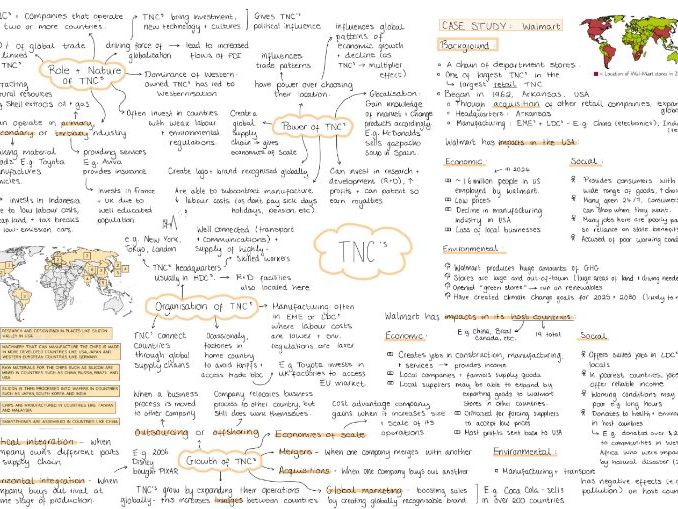 TNCs = Companies that operate
two or more countries.
of global trade
TNCs
driving force of globalisation
lead to increased flows of FDI
TNCs bring investment,
new technology + cultures
Gives TNCs
political influence
Role + Nature
of TNC's
Dominance of Western-
owned TNCs has led to
Westernisation
natural resources
Shell extracts oil + gas
Often invest in countries
with weak labour
+ environmental
regulations.
operate in primary,
secondary or tertiary industry
providing services
E.g. Aviva
provides insurance
E.g. Toyota
manufactures
vehicles.
Invests in France
+ UK due to
well educated
population
invests in Indonesia
due to low labour costs,
land + tax breaks
low-emission cars.
influences
trade patterns
influences global
patterns of
economic growth
+ decline (as
TNCs → multiplier
effect)
have power over choosing
their location.
Create
global
supply
chain → gives
economies of scale
Power of TNC's
Glocalisation:
Gain knowledge
of market + change
products accordingly
E.g. McDonalds
sells gazpacho
soup in Spain.
Create logo + brand recognised globally
Can invest in research +
development (R+D), ↑
profits + can patent so
earn royalties
Are able to subcontract manufacture
↓ labour costs (as don't pay sick days
holidays, pension etc)
e.g. New York,
Tokyo, London
Well connected (transport
+ communications) +
supply of highly-
skilled workers
TNC's
TNC headquarters
usually in HDCs
R+D facilities
also located here
Organisation of TNC's
Manufacturing often
in EME or LDCs
where labour costs
are lower + env.
regulations are laxer
TNCs connect
countries
through global
supply chains
Occasionally,
factories in
home country
to avoid tariffs +
access trade bloc
E.g Toyota invests in
UK factories to access
EU market
RESEARCH AND DESIGN IN PLACES LIKE SILICON
VALLEY IN USA
RAW MATERIALS FOR THE CHIPS SUCH AS SILICON ARE
SILICON IS THEN PROCESSED INTO WAFERS IN COUNTRIES
CHIPS ARE MANUFACTURED IN COUNTRIES LIKE TAIWAN
AND MALAYSIA
SMARTPHONES ARE ASSEMBLED IN COUNTRIES LIKE CHINA
When a business
process is moved
to other company
Company relocates
process to other country, but
still does work themselves.
Cost advantage company
gains when it increases size
+ scale of its
operations
Outsourcing or offshoring
Economies of scale
vertical integration - when
company owns different parts
supply chain
E.g. 2006
Disney
bought PIXAR
Growth of TNC's
Mergers - When one company merges with another
Acquisitions - When one company buys out another
horizontal integration - When
company buys out rival at
same stage of production.
TNCs grow by expanding their operations
globally - this increases linkages between countries
Global marketing - boosting sales
by creating globally recognisable brand
E.g Coca Cola - sells
in over 200 countries
CASE STUDY: Walmart
= Location of Wal-Mart stores in
Background:
A chain of department stores.
One of largest TNCs in the
largest retail TNC
Began in 1962, Arkansas, USA
Though acquisition of other retail companies,
Headquarters: Arkansas
Manufacturing: EMEs + LDCs - E.g. China (electronics),
Walmart has impacts in the USA:
Economic:
in 2024
~ 1.6 million people in US
employed by Walmart.
Low prices
Decline in manufacturing
industry in USA
Loss of local businesses
Social:
Provides consumers with
wide range of goods,
Many open 24/7,
can shop when they want.
Many jobs here are poorly
so reliance on state benefits
Accused of poor working
Environmental
Walmart produces huge amounts of GHG
Stores are huge and out-of-town (large areas of land + driving
Opened "green stores" → run on renewables
Have created climate change goals for 2025 + 2030
Walmart has impacts in its host countries:
E.g China, Brazil
Canada, etc.
19 total
Economic:
Creates jobs in construction, manufacturing,
+ services → provides income
Local companies + farmers supply goods
Local suppliers may be able to expand by
exporting goods to Walmart
Stores in other countries.
Criticised for forcing suppliers
to accept low prices
Most profits sent back to USA
Social:
Offers skilled jobs in LDCs
In poorest countries,
offer reliable income
Working conditions may
poor E.g long hours
Donates to health +
in host countries
E.g donated over
to communities in
Africa who were
by natural disaster
Environmental:
Manufacturing + transport
has negative effects
pollution) on host